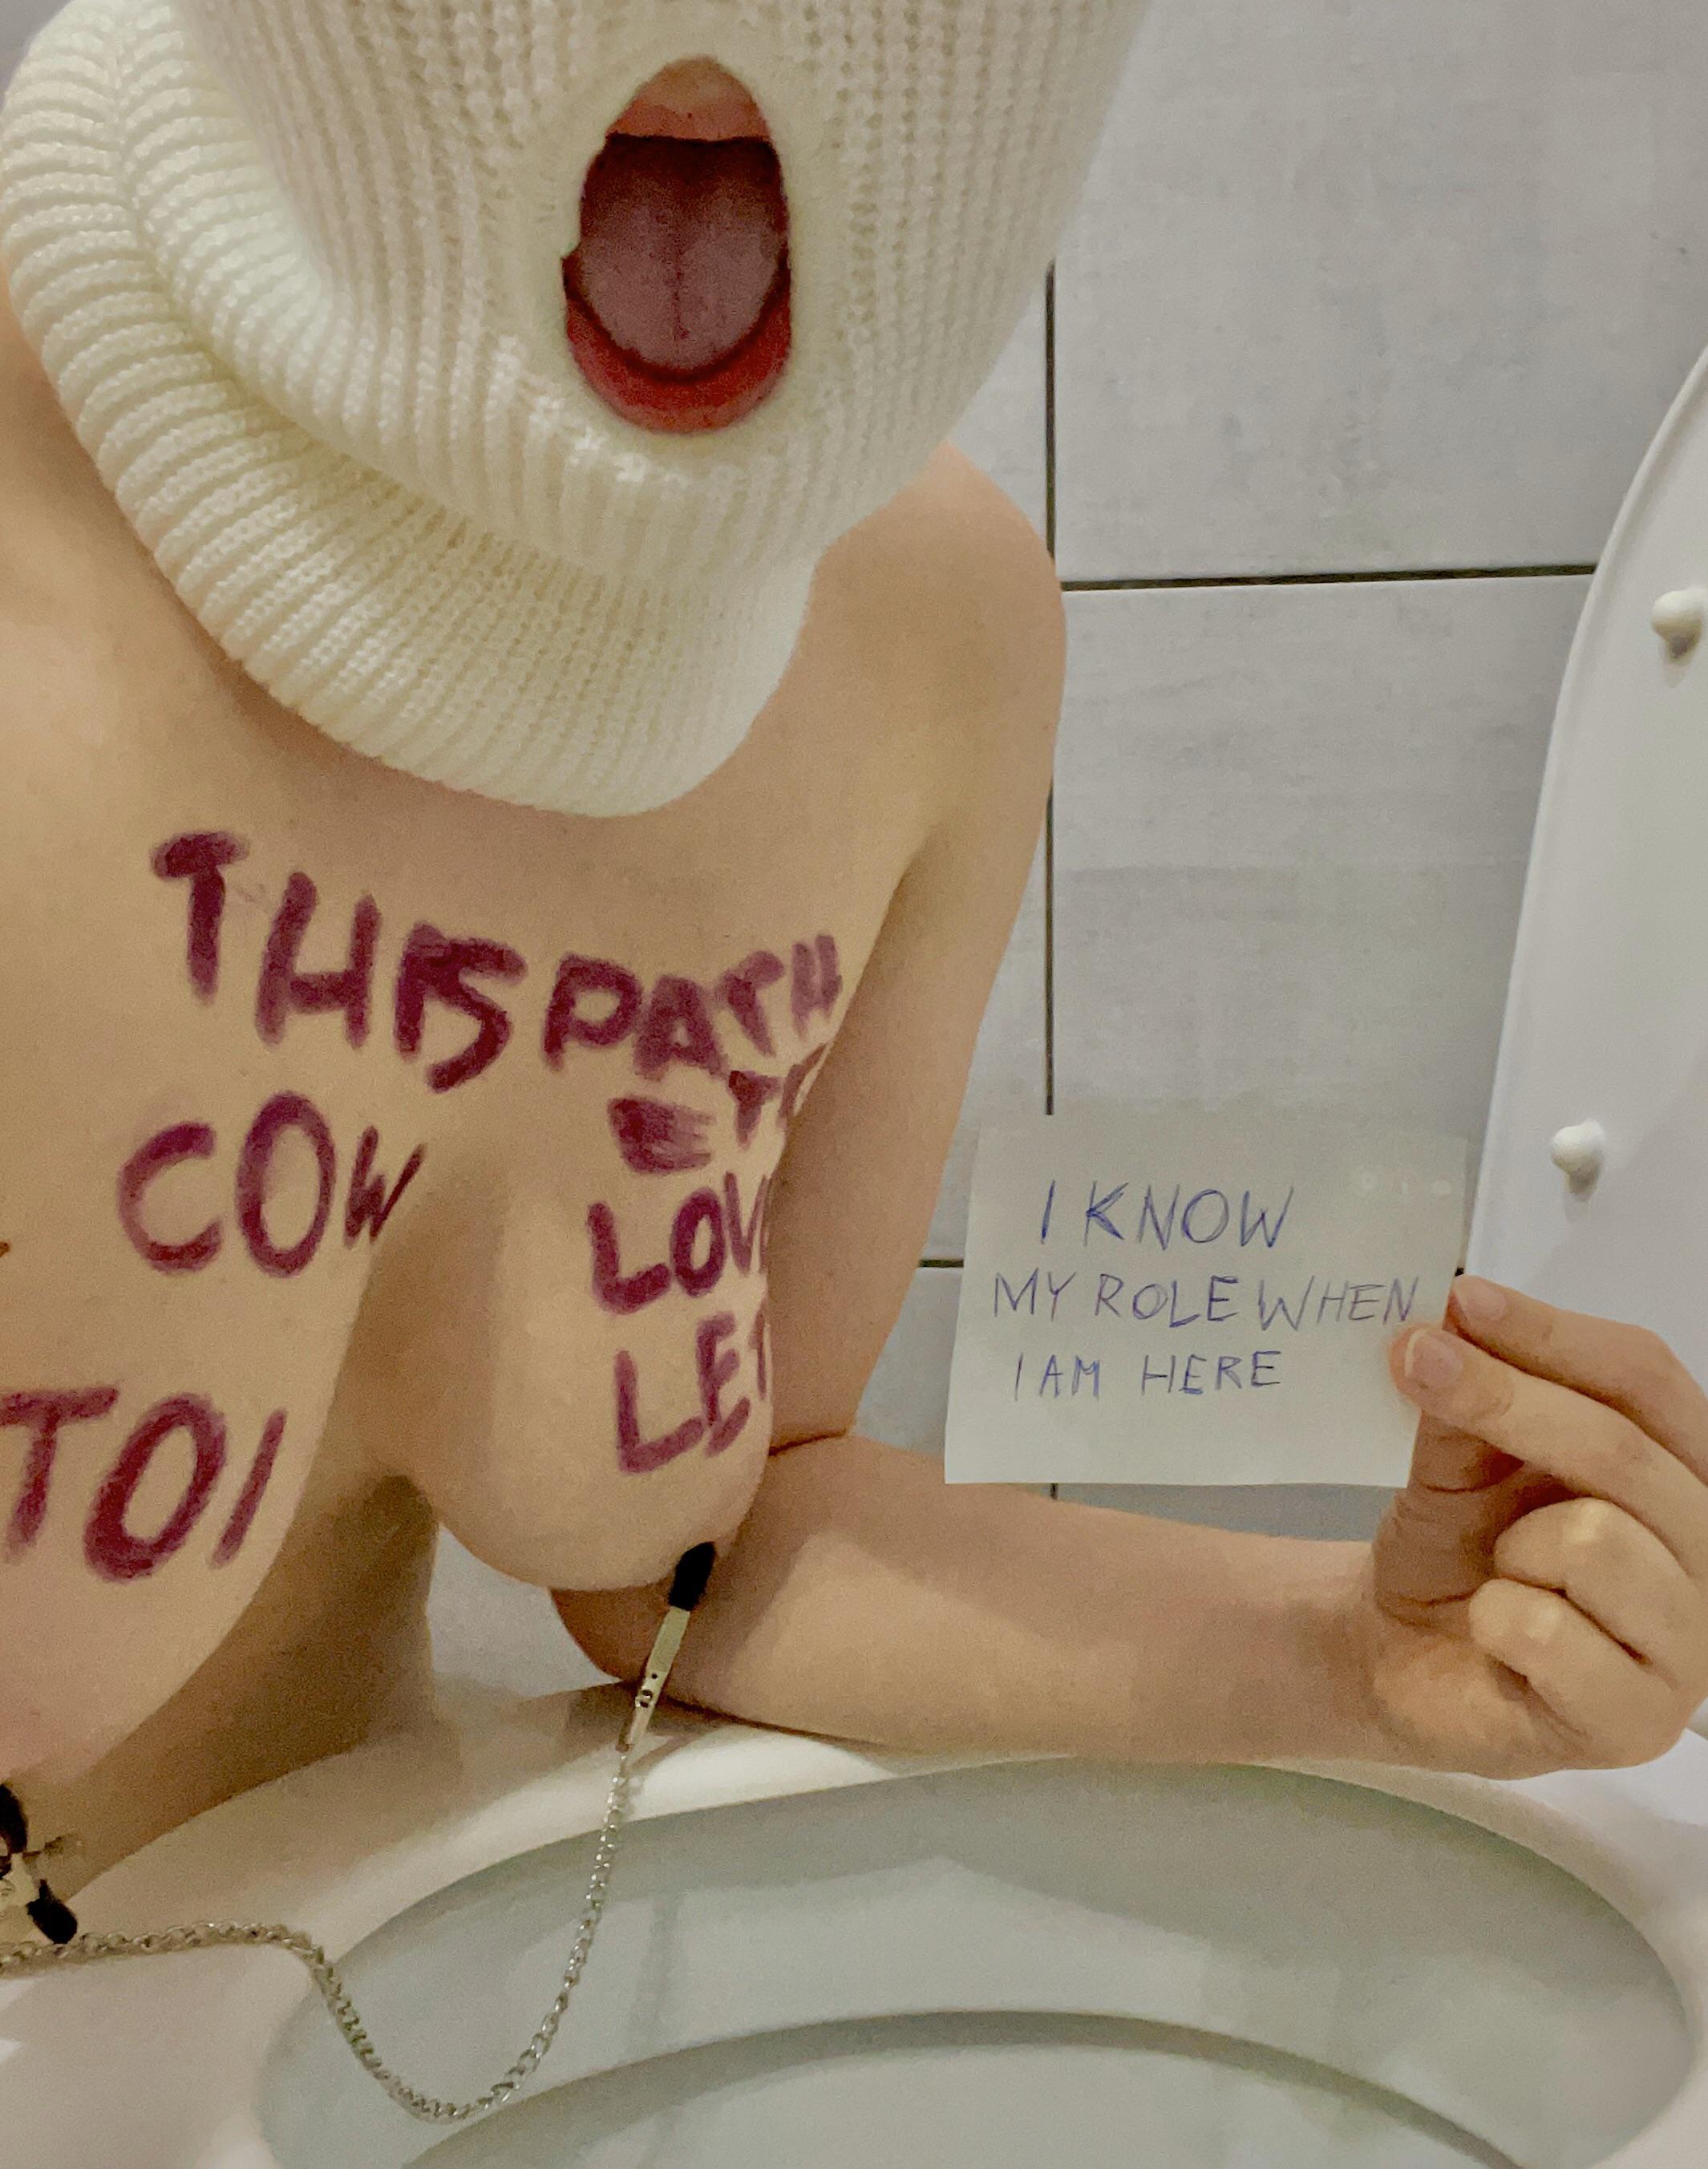 THIS PATH
COW
LOV
LET
TOI
I KNOW
MY ROLE WHEN
I AM HERE